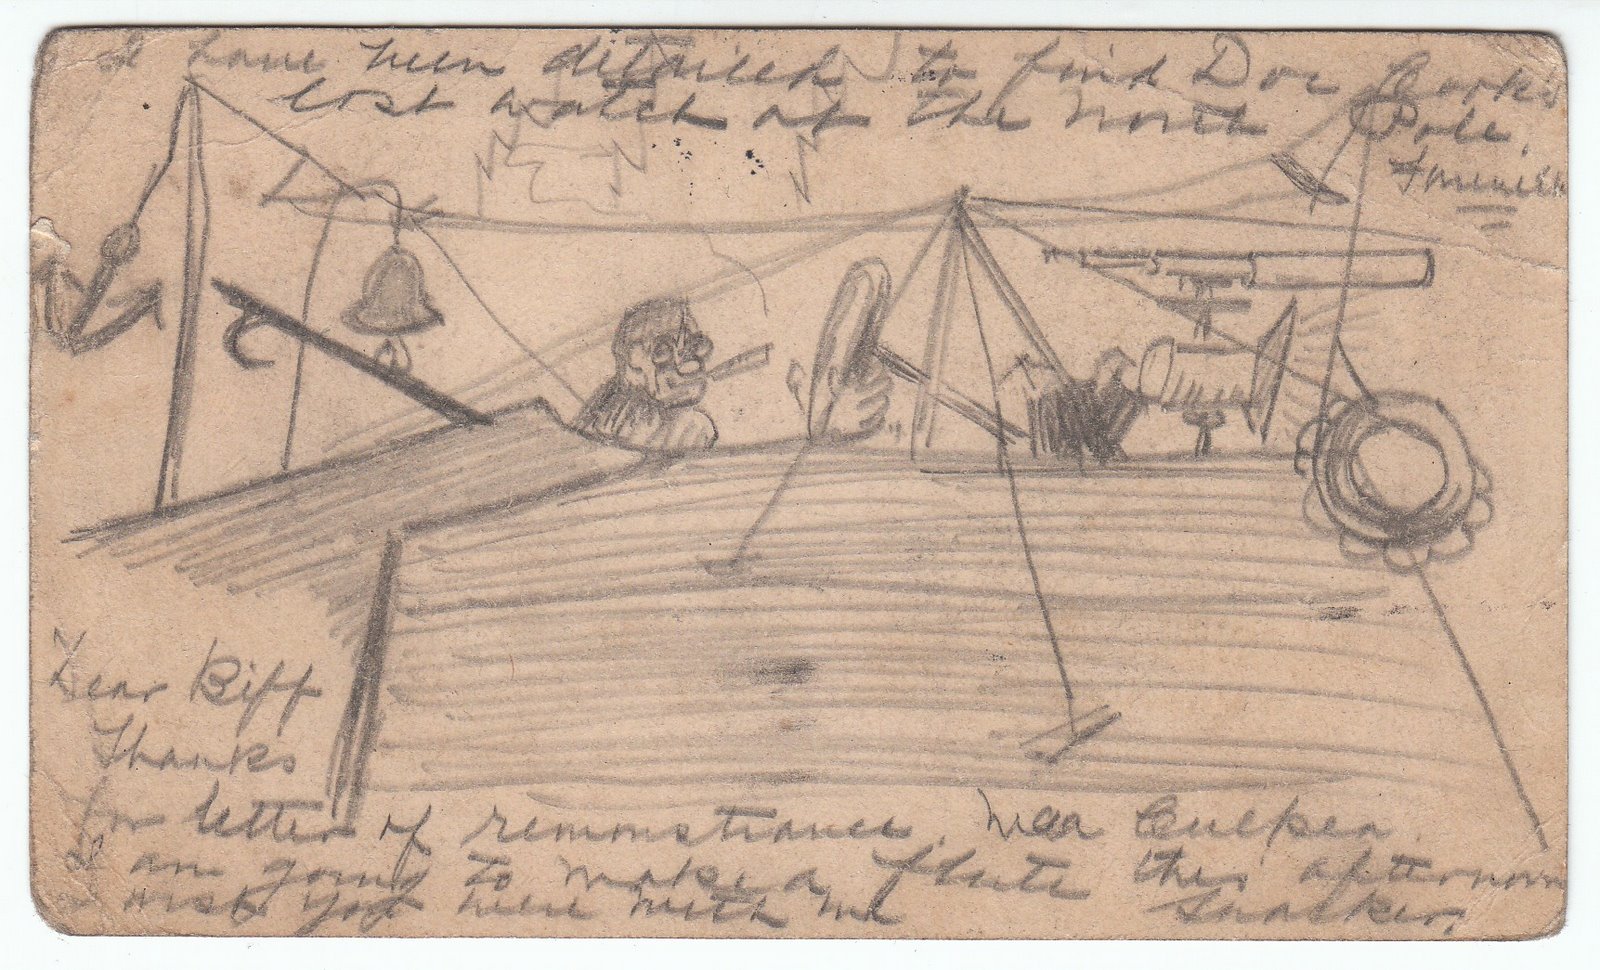 I have been detailed to find Doc Cook's
lost watch at the North Pole.
Farewell
Dear Biff
Thanks
for letter of remonstrance. Mea Culpea.
I am going to make a flute this afternoon
wish you were with me